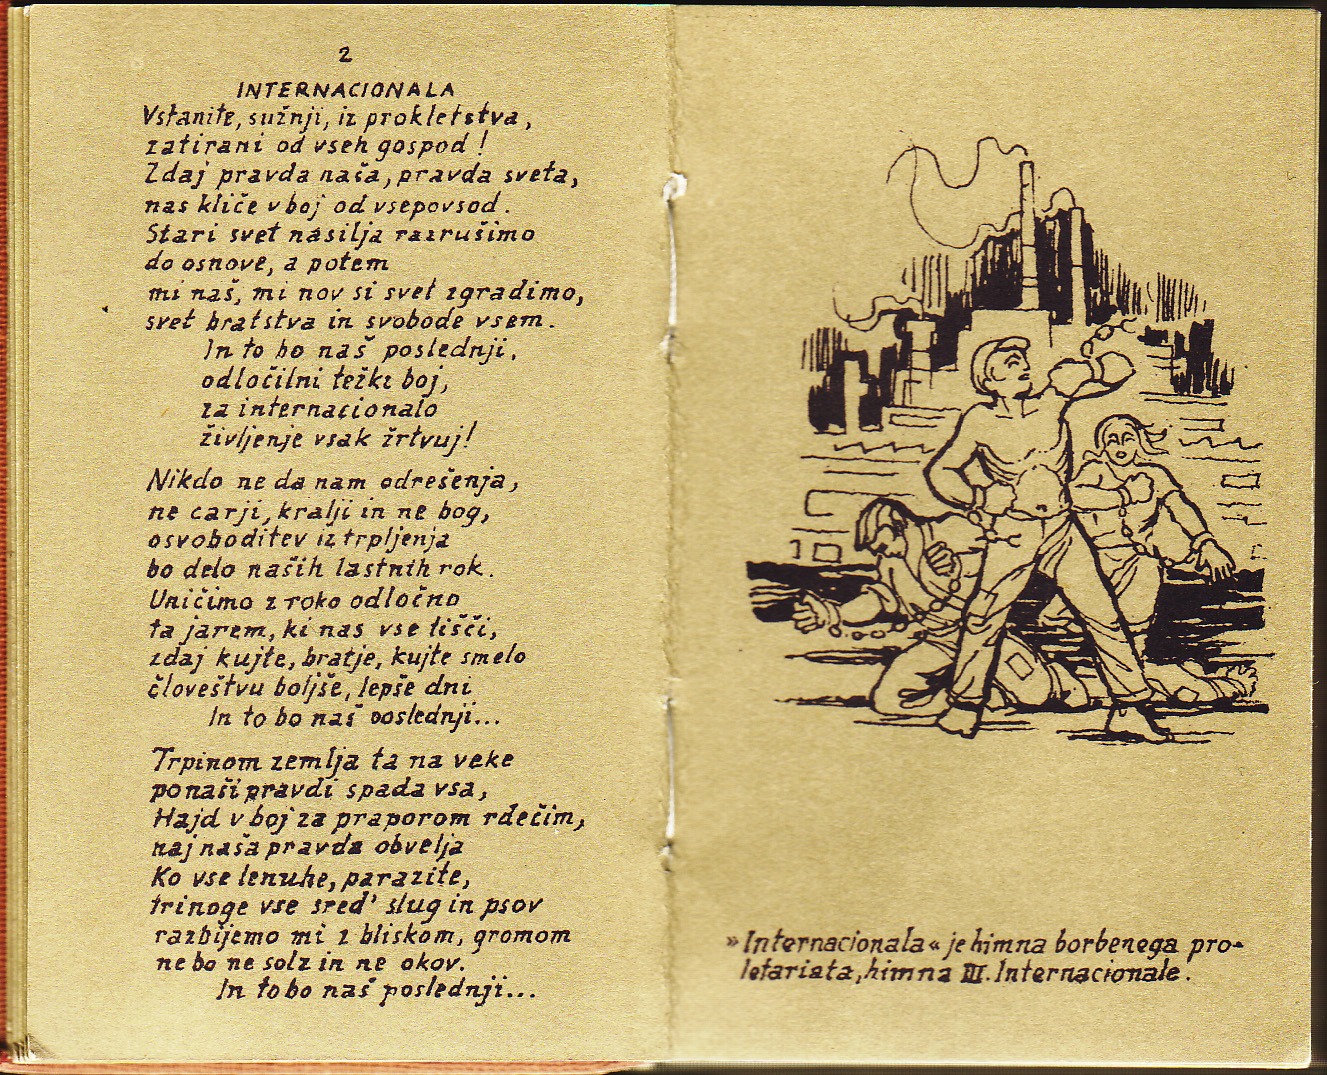 2
INTERNACIONALA
Vstanite, sužnji, iz prokletstva,
zatirani od vseh gospod!
Zdaj pravda naša, pravda sveta,
nas kliče v boj od vsepovsod.
Stari svet nasilja razrušimo
do osnove, a potem
mi naš, mi nov si svet zgradimo,
svet bratstva in svobode vsem.
In to bo naš poslednji,
odločilni težki boj,
za internacionalo
življenje vsak žrtvuj!
Nikdo ne da nam odrešenja,
ne carji, kralji in ne bog,
osvoboditev iz trpljenja
bo delo naših lastnih rok.
Uničimo z roko odločno
ta jarem, ki nas vse tišči,
zdaj kujte, bratje, kujte smelo
človeštvu boljše, lepše dni
In to bo naš poslednji...
Trpinom zemlja ta na veke
po naši pravdi spada vsa,
Hajd v boj za praporom rdečim,
naj naša pravda obvelja
Ko vse lenuhe, parazite,
trinoge vse sred' slug in psov
razbijemo mi z bliskom, gromom
ne bo ne solz in ne okov.
In to bo naš poslednji...
»Internacionala« je himna borbenega pro-
letariata, himna III. Internacionale.